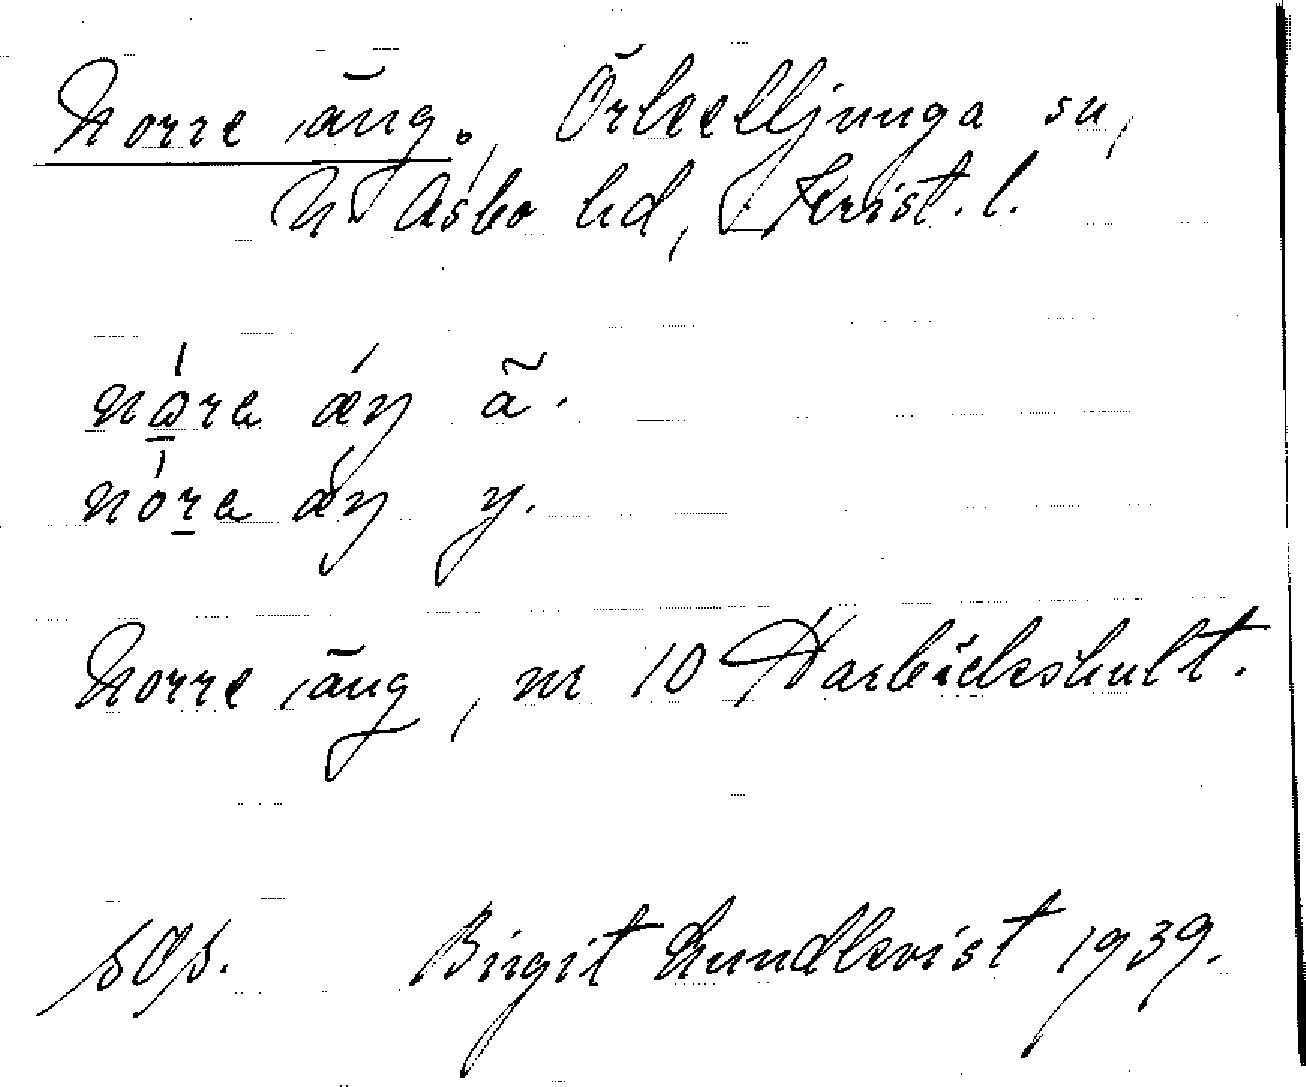 Norre äng, Örkelljunga sn,
N Åsbo hd, Krist. l.
nó̱ra ǽŋ ã.
nóṟa ǽŋ y.
Norre äng, nr 10 Harbäckshult.
sOs. Birgit Lundkvist 1939.